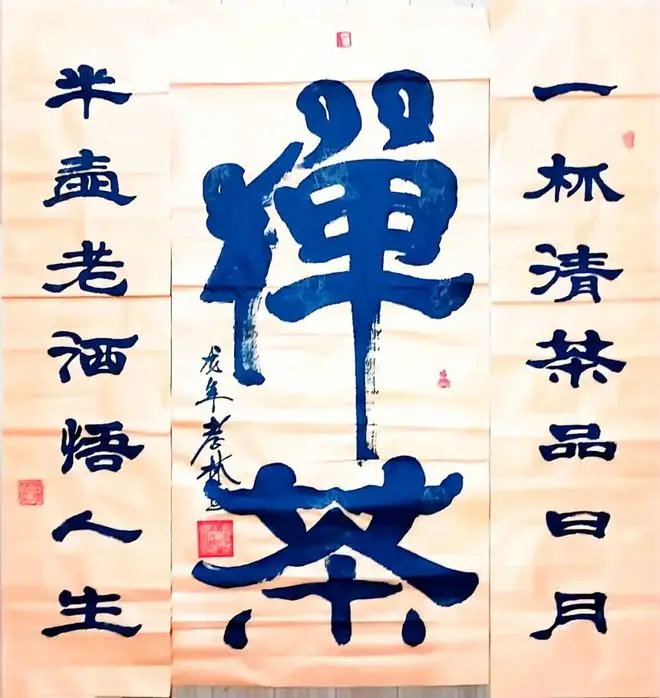 一杯清茶品日月
禪茶
龙年孝林
半壺老酒悟人生